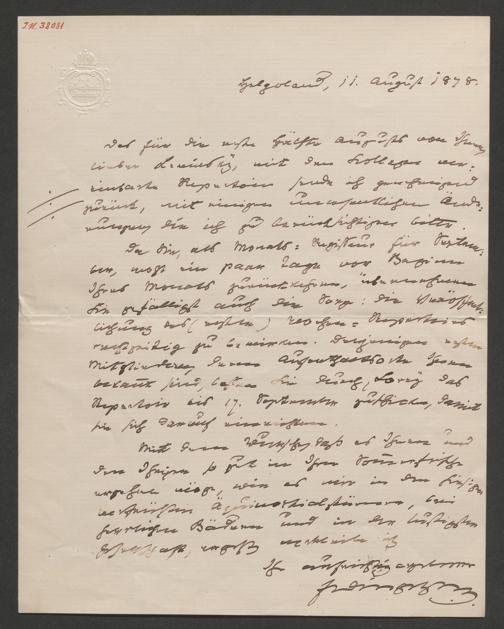 I.N. 38081
Helgoland, 11. August 1878.
Das für die erste Hälfte Augusts von Ihnen,
lieber mit den Collegen ver-
einbarte Repertoire sende ich genehmigend
zurück, mit einigen unwesentlichen Ände-
rungen, die ich zu berücksichtigen bitte.
Da Sie, als Monats-Regisseur für Septem-
ber, wohl ein paar Tage vor Beginn
Ihres Monats zurückkehren, übernehmen
Sie gefälligst auch die Sorge: die Veröffent-
lichung des (ersten) Wochen-Repertoires
rechtzeitig zu bewirken. Denjenigen
Mitgliedern, deren Aufenthaltsorte Ihnen
bekannt sind, Sie durch das
Repertoir bis 17. September zuschicken, damit
sie sich danach einrichten.
Mit dem Wunsche, daß es Ihnen und
den Ihrigen so gut in Ihrer Sommerfrische
ergehen möge, wie es mir in den hiesigen
bei
herrlichen Bädern und in der lustigsten
Gesellschaft, ergeht, verbleibe ich
Ihr aufrichtig ergebener